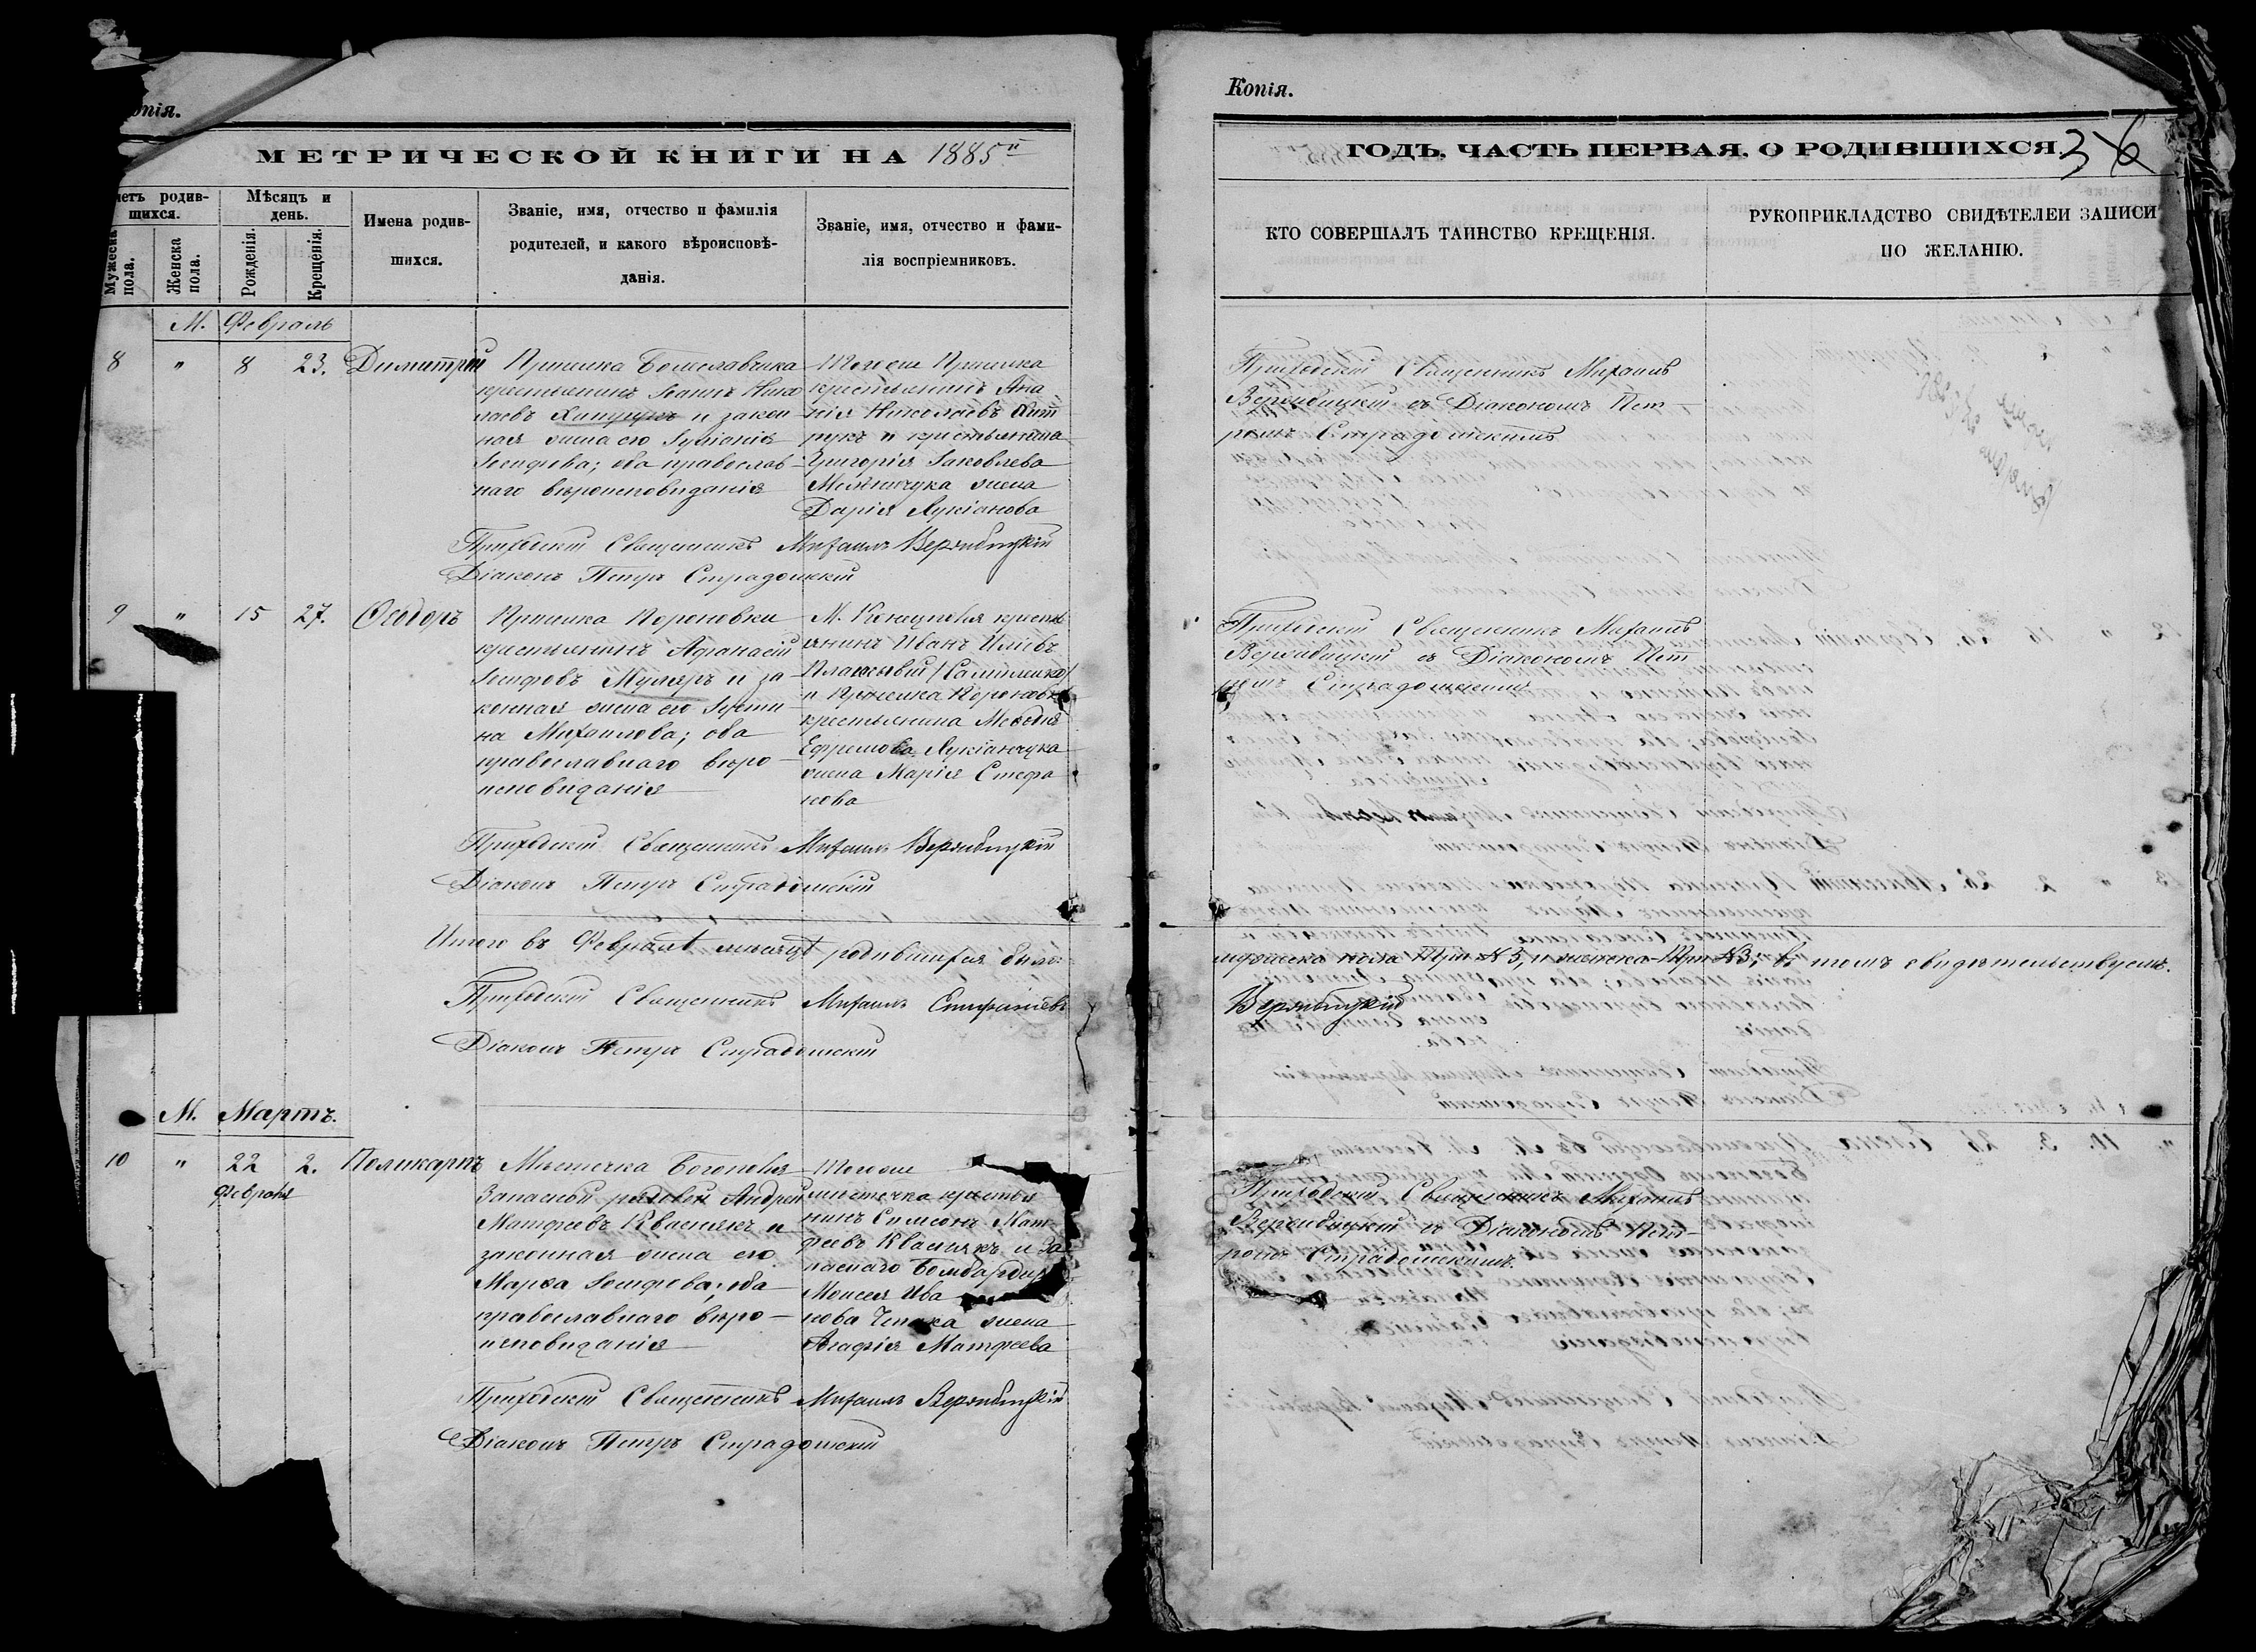 Копія.
МЕТРИЧЕСКОЙ КНИГИ НА 1885й
четъ родив-
шихся.
Мужеска
пола.
Женска
пола.
Мѣсяцъ и
день.
Рожденія.
Крещенія.
Имена родив-
шихся.
Званіе, имя, отчество и фамилія
родителей, и какого вѣроисповѣ-
данія.
Званіе, имя, отчество и фами-
лія воспріемниковъ.
М. Февраль
8 " 8 23. Димитрій
крестьянинъ Іоаннъ Нико
лаевъ и закон
ная жена его
Іосифова; оба православ
наго вѣроисповѣданія
Тогоже
крестьянинъ Ана
нія Николаевъ
и крестьянина
Григорія Іаковлева
жена
Дарія Лукіанова
Приходскій Священникъ Михаилъ Вержбицкій
Діаконъ Петръ Страдомскій
9 " 15 27. Ѳеодоръ
крестьянинъ Афанасій
Іосифовъ Муляръ и за
конная жена его Іусти
на Михаилова; оба
православнаго вѣро
исповѣданія
М. крестья
янинъ Иванъ Иліевъ
и
крестьянина Меѳодія
Ефремова Лукіанчука
жена Марія Стефа
нова
Приходскій Священникъ Михаилъ Вержбицкій
Діаконъ Петръ Страдомскій
Итого въ Февралѣ мѣсяцѣ родившихся было:
Приходскій Священникъ Михаилъ
Діаконъ Петръ Страдомскій
М. Мартъ.
10 " 22 2. Поликарпъ
Февраля
Мѣстечка Богополя
Запасной рядовой Андрей
Матфеевъ Кваснякъ и
законная жена его
Марѳа Іосифова; оба
православнаго вѣро
исповѣданія
Тогоже
мѣстечка крестья
нинъ Симеонъ Мат
феевъ Кваснякъ и За
паснаго Бомбардира
Моисея Ива
нова жена
Агафія Матфеева
Приходскій Священникъ Михаилъ Вержбицкій
Діаконъ Петръ Страдомскій
Копія.
ГОДЪ, ЧАСТЬ ПЕРВАЯ, О РОДИВШИХСЯ.
36
КТО СОВЕРШАЛЪ ТАИНСТВО КРЕЩЕНІЯ.
РУКОПРИКЛАДСТВО СВИДѢТЕЛЕЙ ЗАПИСИ
ПО ЖЕЛАНІЮ.
Приходскій Священникъ Михаилъ
Вержбицкій съ Діакономъ Пет
ромъ Страдомскимъ
Приходскій Священникъ Михаилъ
Вержбицкій съ Діакономъ Пет
ромъ Страдомскимъ
мужеска пола Три №3, и женска Три №3; въ томъ свидѣтельствуемъ.
Вержбицкій
Приходскій Священникъ Михаилъ
Вержбицкій съ Діакономъ Пет-
ромъ Страдомскимъ.